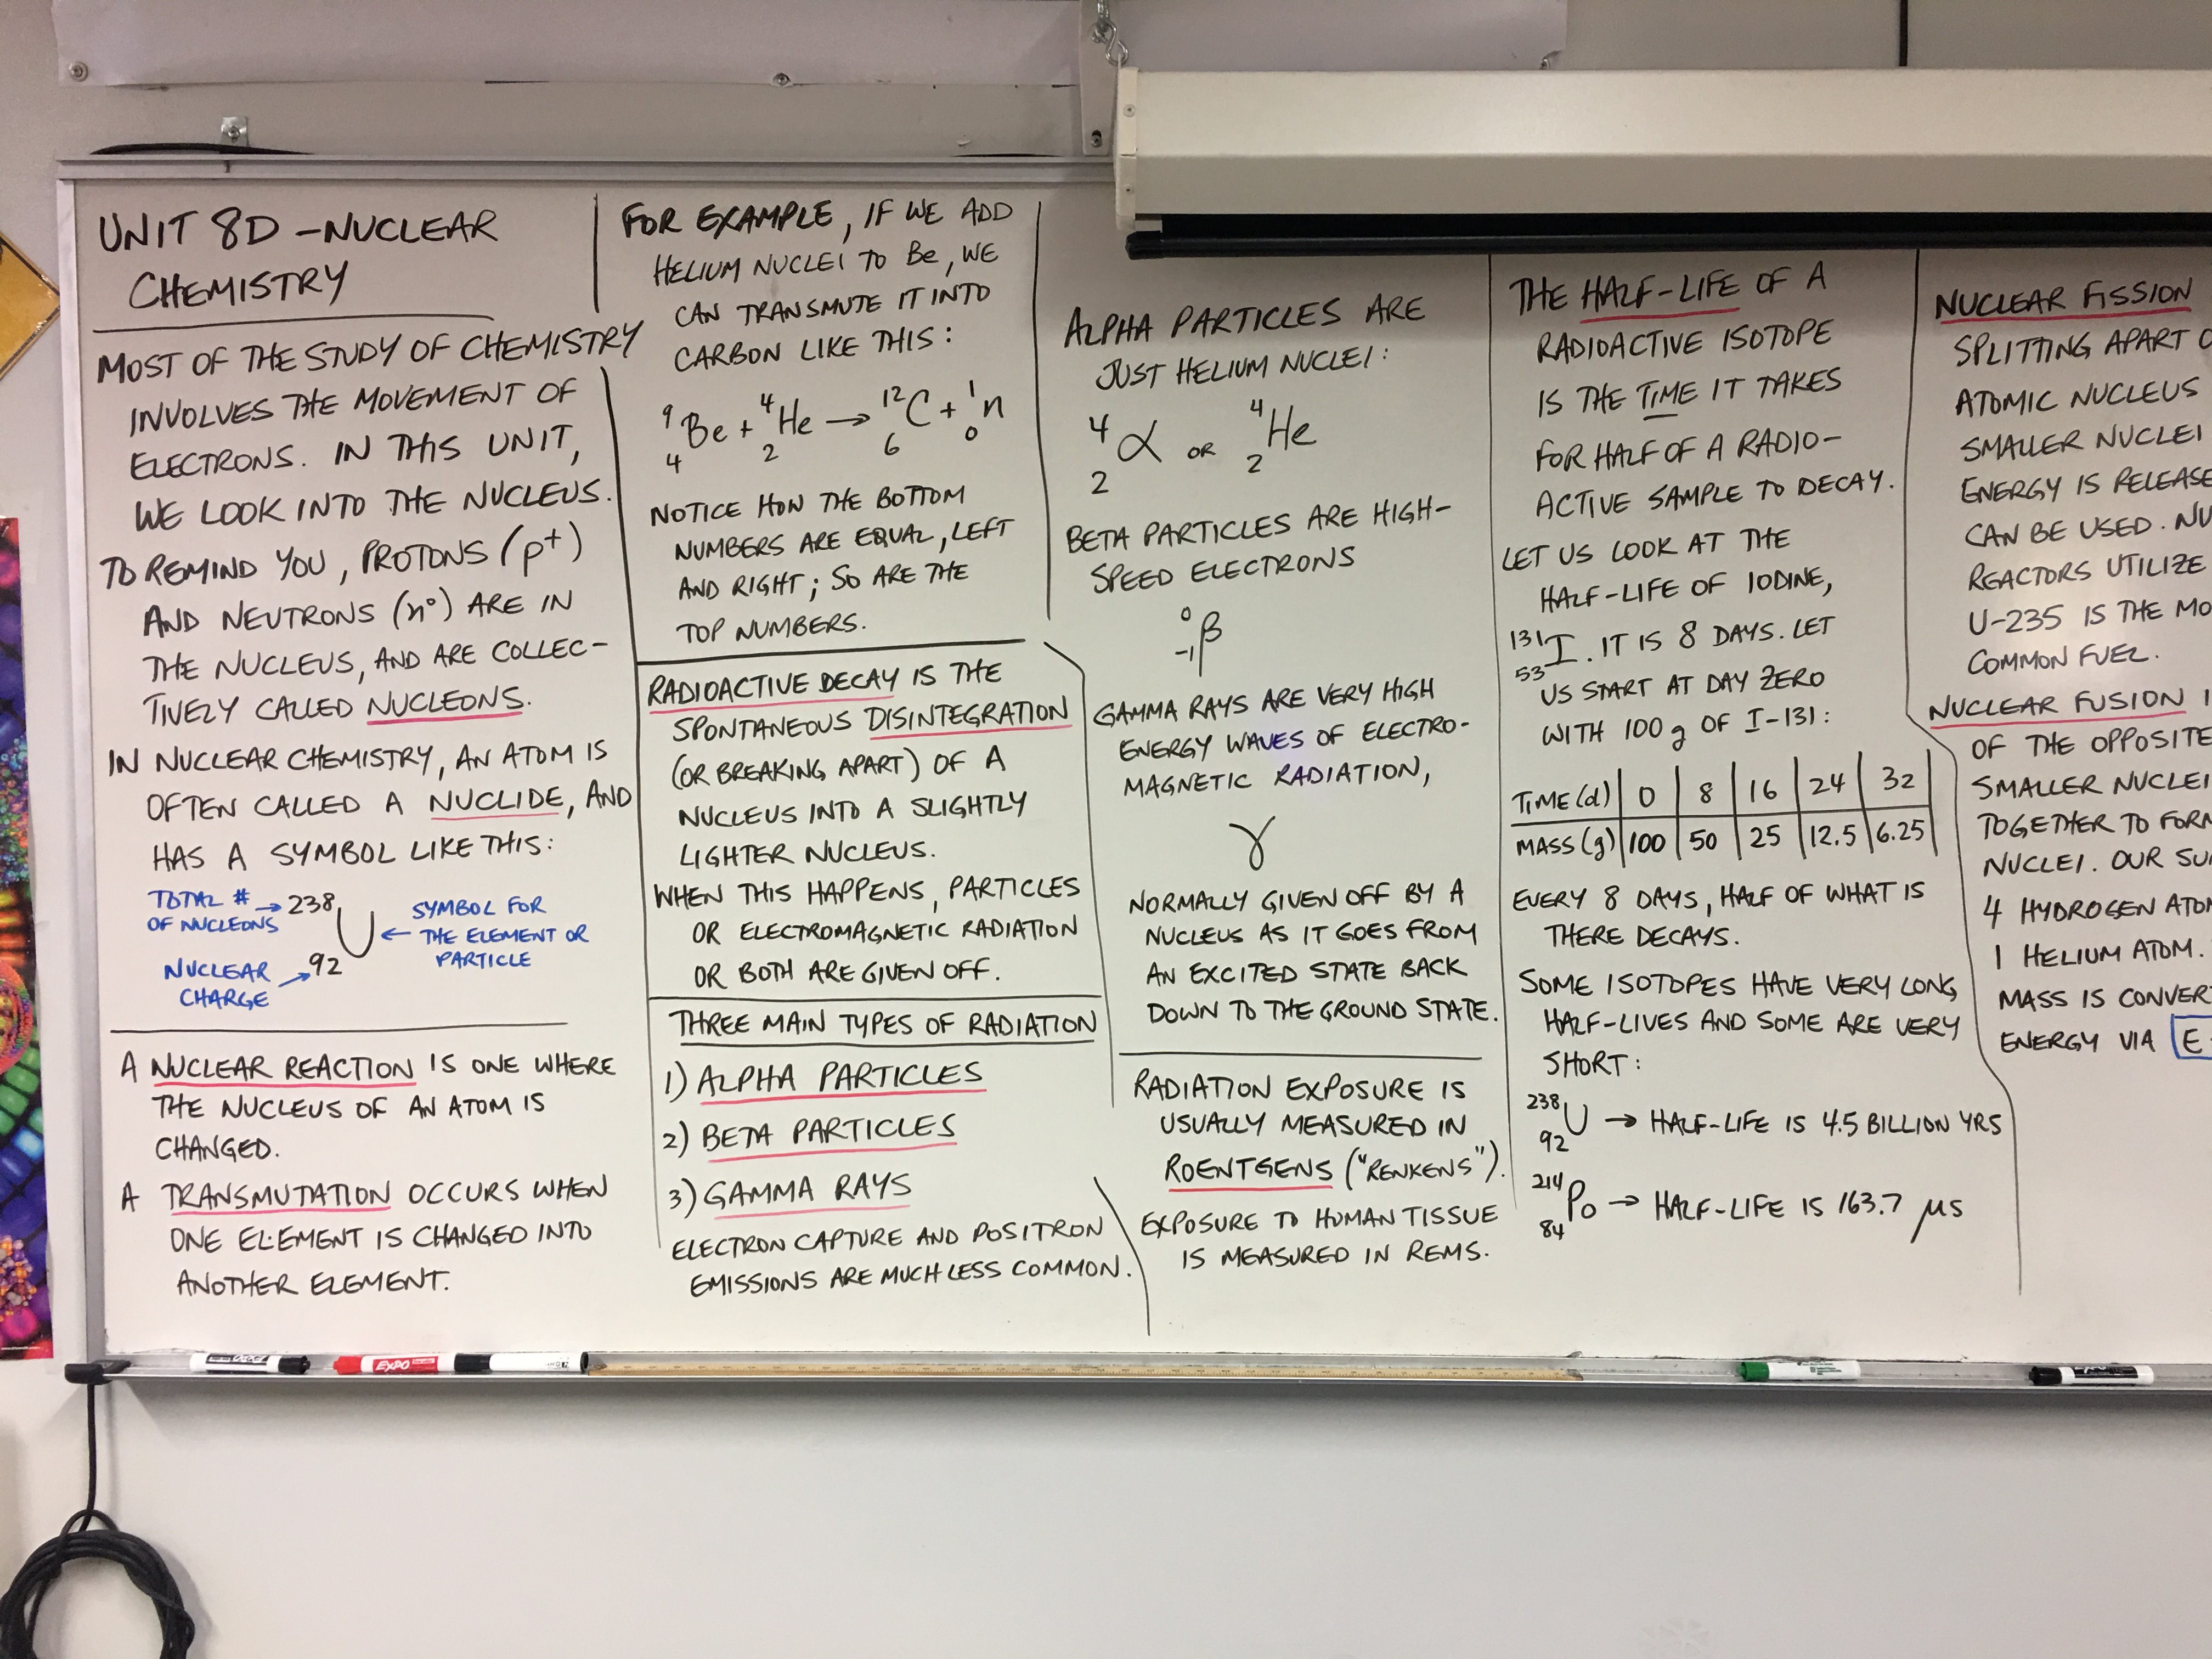 UNIT 8D – NUCLEAR
CHEMISTRY
MOST OF THE STUDY OF CHEMISTRY
INVOLVES THE MOVEMENT OF
ELECTRONS. IN THIS UNIT,
WE LOOK INTO THE NUCLEUS.
TO REMIND YOU, PROTONS (p⁺)
AND NEUTRONS (n⁰) ARE IN
THE NUCLEUS, AND ARE COLLEC-
TIVELY CALLED NUCLEONS.
IN NUCLEAR CHEMISTRY, AN ATOM IS
OFTEN CALLED A NUCLIDE, AND
HAS A SYMBOL LIKE THIS:
TOTAL # OF NUCLEONS → 238
U ← SYMBOL FOR
THE ELEMENT OR
PARTICLE
NUCLEAR CHARGE → 92
A NUCLEAR REACTION IS ONE WHERE
THE NUCLEUS OF AN ATOM IS
CHANGED.
A TRANSMUTATION OCCURS WHEN
ONE ELEMENT IS CHANGED INTO
ANOTHER ELEMENT.
FOR EXAMPLE, IF WE ADD
HELIUM NUCLEI TO Be, WE
CAN TRANSMUTE IT INTO
CARBON LIKE THIS:
⁹₄Be + ⁴₂He → ¹²₆C + ¹₀n
NOTICE HOW THE BOTTOM
NUMBERS ARE EQUAL, LEFT
AND RIGHT; SO ARE THE
TOP NUMBERS.
RADIOACTIVE DECAY IS THE
SPONTANEOUS DISINTEGRATION
(OR BREAKING APART) OF A
NUCLEUS INTO A SLIGHTLY
LIGHTER NUCLEUS.
WHEN THIS HAPPENS, PARTICLES
OR ELECTROMAGNETIC RADIATION
OR BOTH ARE GIVEN OFF.
THREE MAIN TYPES OF RADIATION
1) ALPHA PARTICLES
2) BETA PARTICLES
3) GAMMA RAYS
ELECTRON CAPTURE AND POSITRON
EMISSIONS ARE MUCH LESS COMMON.
ALPHA PARTICLES ARE
JUST HELIUM NUCLEI:
⁴₂α OR ⁴₂He
BETA PARTICLES ARE HIGH-
SPEED ELECTRONS
⁰₋₁β
GAMMA RAYS ARE VERY HIGH
ENERGY WAVES OF ELECTRO-
MAGNETIC RADIATION,
γ
NORMALLY GIVEN OFF BY A
NUCLEUS AS IT GOES FROM
AN EXCITED STATE BACK
DOWN TO THE GROUND STATE.
RADIATION EXPOSURE IS
USUALLY MEASURED IN
ROENTGENS ("RENKENS").
EXPOSURE TO HUMAN TISSUE
IS MEASURED IN REMS.
THE HALF-LIFE OF A
RADIOACTIVE ISOTOPE
IS THE TIME IT TAKES
FOR HALF OF A RADIO-
ACTIVE SAMPLE TO DECAY.
LET US LOOK AT THE
HALF-LIFE OF IODINE,
¹³¹₅₃I. IT IS 8 DAYS. LET
US START AT DAY ZERO
WITH 100 g OF I-131:
TIME (d) 0 8 16 24 32
MASS (g) 100 50 25 12.5 6.25
EVERY 8 DAYS, HALF OF WHAT IS
THERE DECAYS.
SOME ISOTOPES HAVE VERY LONG
HALF-LIVES AND SOME ARE VERY
SHORT:
²³⁸₉₂U → HALF-LIFE IS 4.5 BILLION YRS
²¹⁴₈₄Po → HALF-LIFE IS 163.7 μs
NUCLEAR FISSION
SPLITTING APART
ATOMIC NUCLEUS
SMALLER NUCLEI
ENERGY IS
CAN BE USED.
REACTORS UTILIZE
U-235 IS THE
COMMON FUEL.
NUCLEAR FUSION
OF THE OPPOSITE
SMALLER NUCLEI
TOGETHER TO
NUCLEI. OUR
4 HYDROGEN
1 HELIUM ATOM.
MASS IS
ENERGY VIA E
EXPO